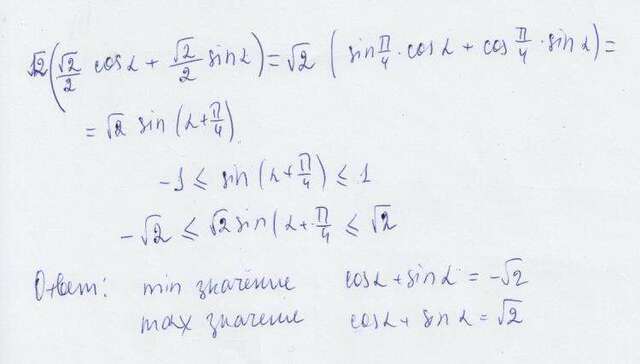 √2(√2/2 cosα + √2/2 sinα) = √2 (sin π/4 · cosα + cos π/4 · sinα) =
= √2 sin (α+π/4)
-1 ⩽ sin (α+π/4) ⩽ 1
-√2 ⩽ √2 sin(α+π/4 ⩽ √2
Ответ: min значение cosα + sinα = -√2
max значение cosα + sinα = √2